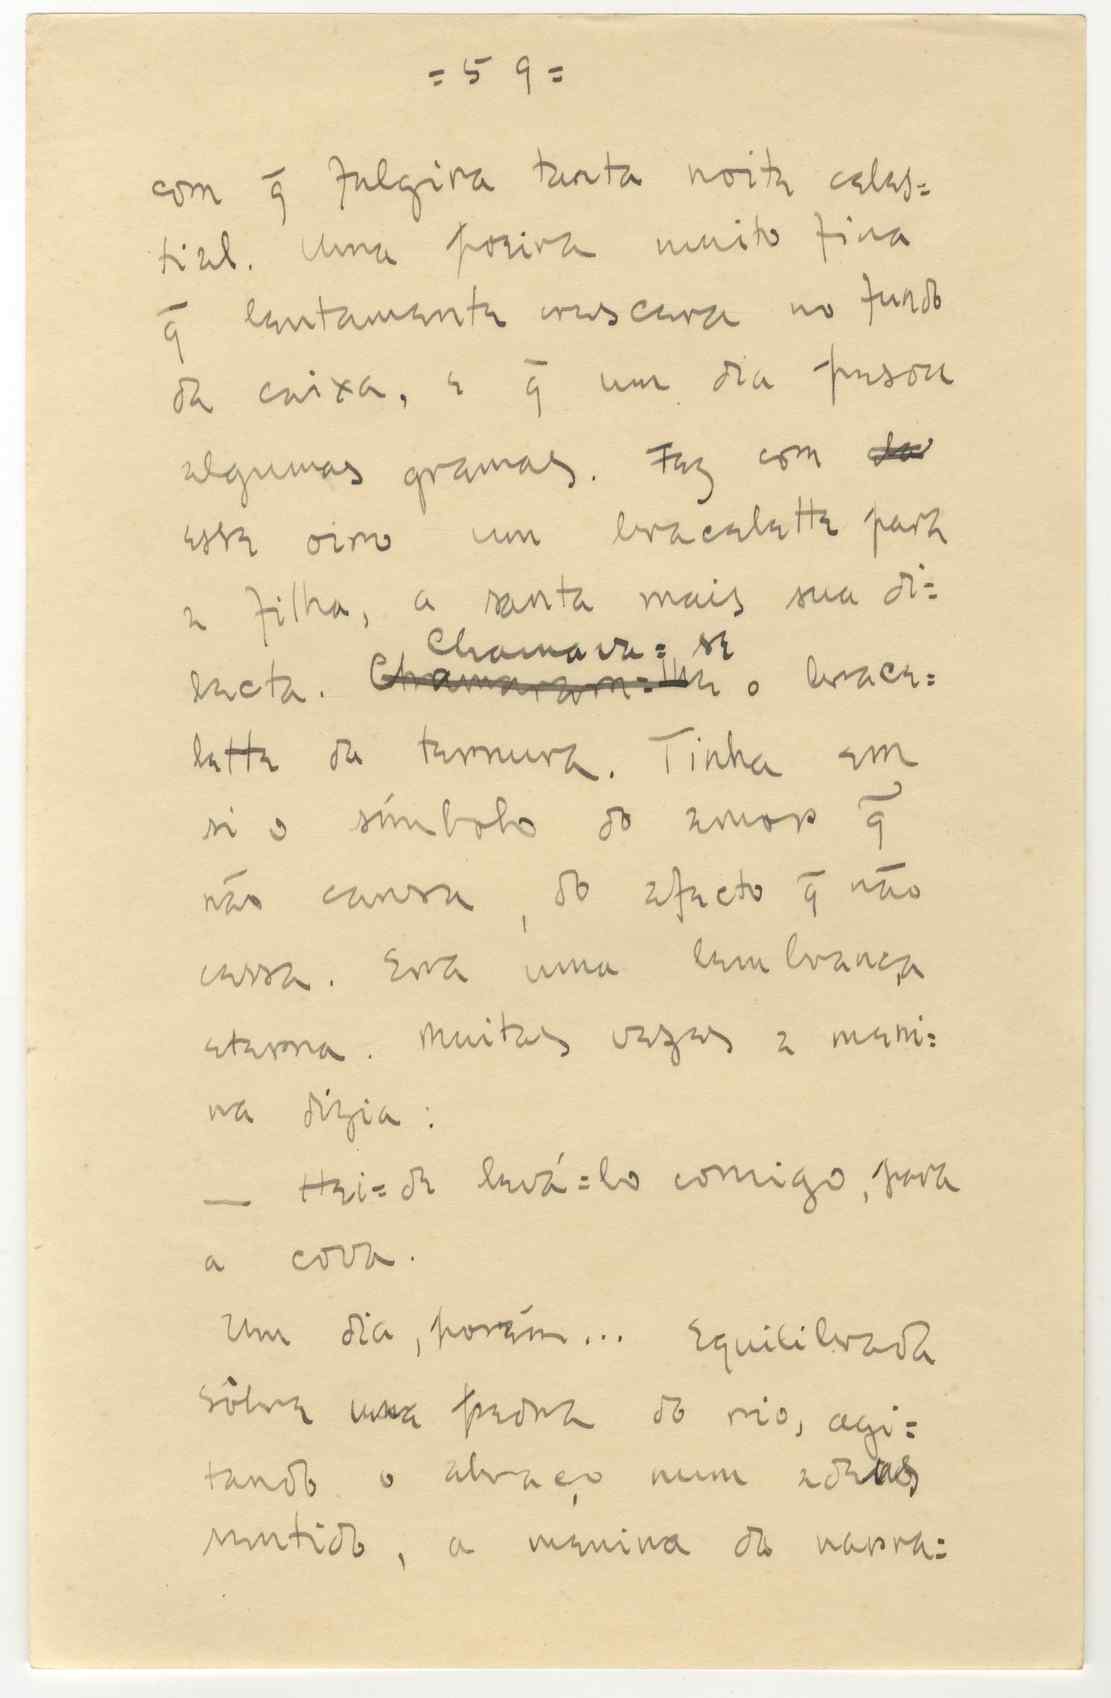 = 5 9 =
com q̄ fulgira tanta noite celes=
tial. Uma poeira muito fina
q̄ lentamente crescera no fundo
da caixa, e q̄ um dia pesou
algumas gramas. Fez com
esse oiro um bracelette para
a filha, a santa mais sua di=
lecta. Chamava=se o brace=
lette da ternura. Tinha em
si o símbolo do amor q̄
não cansa, do afecto q̄ não
cessa. Era uma lembrança
eterna. Muitas vezes a meni=
na dizia:
— Hei=de levá=lo comigo, para
a cova.
Um dia, porém... Equilibrada
sôbre uma pedra do rio, agi=
tando o abraço num adeus
sentido, a menina da narra=